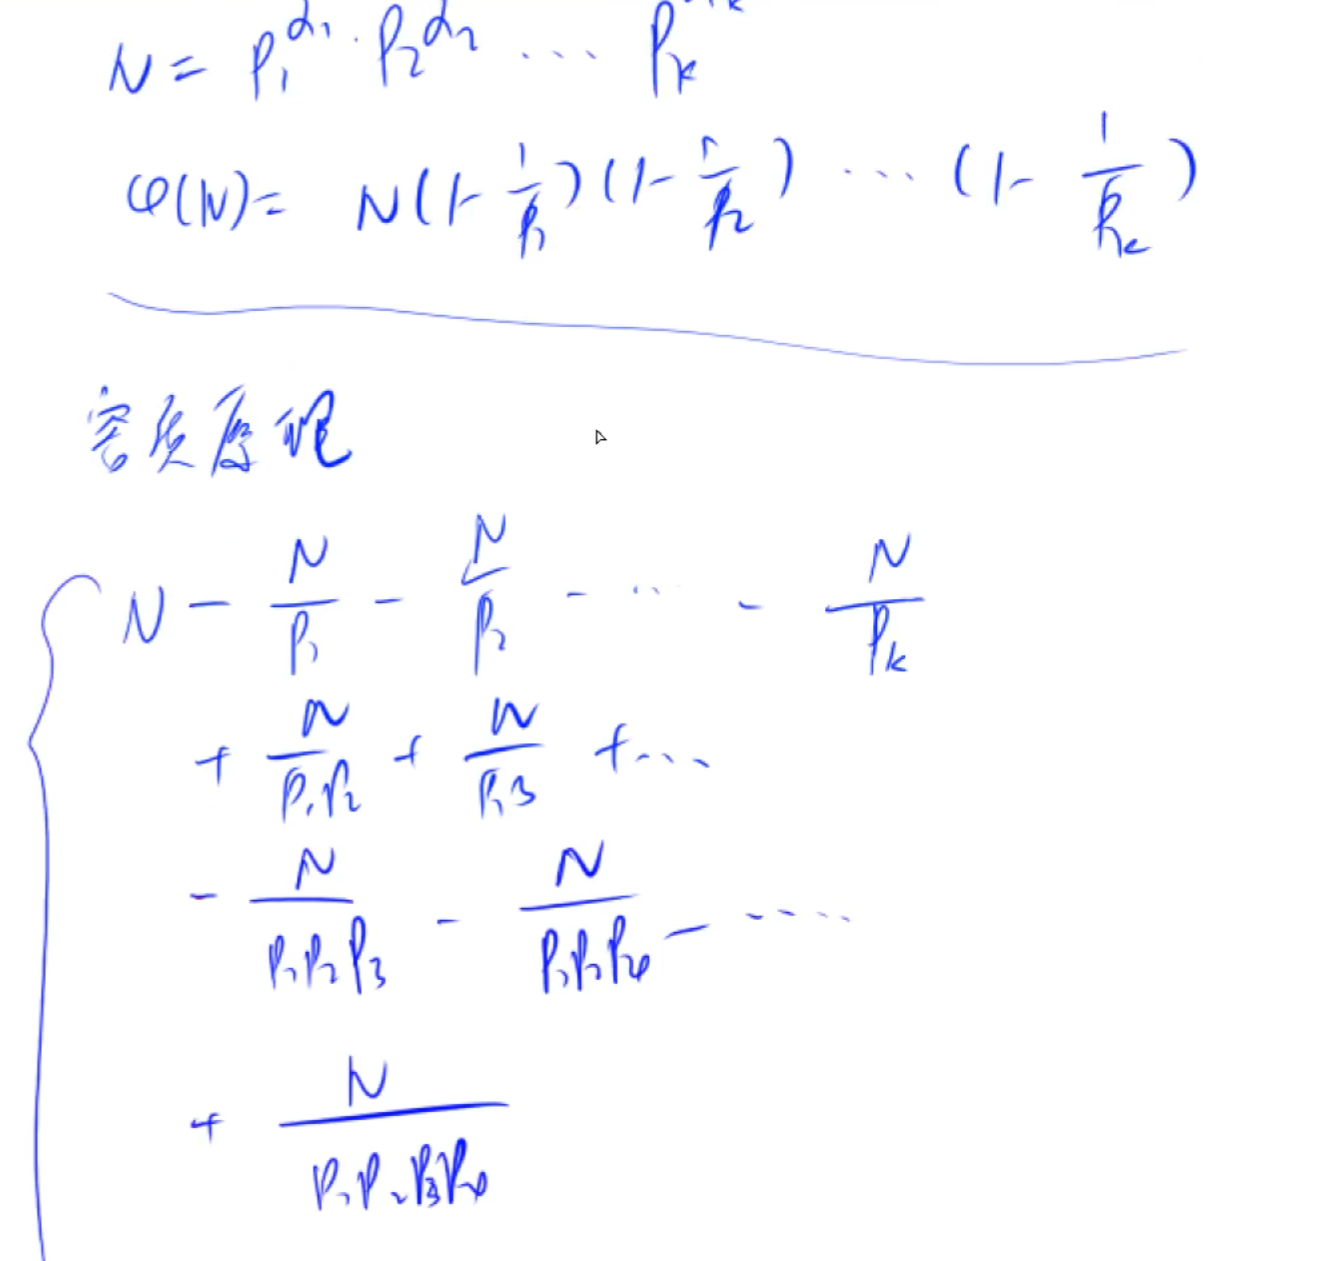 N = P₁^α₁ · P₂^α₂ ... Pₖ
φ(N) = N(1 - 1/P₁)(1 - 1/P₂) ... (1 - 1/Pₖ)
容斥原理
N - N/P₁ - N/P₂ - ... - N/Pₖ
+ N/P₁P₂ + N/P₁3 + ...
- N/P₁P₂P₃ - N/P₁P₂P₄ - ....
+ N/P₁P₂P₃P₄